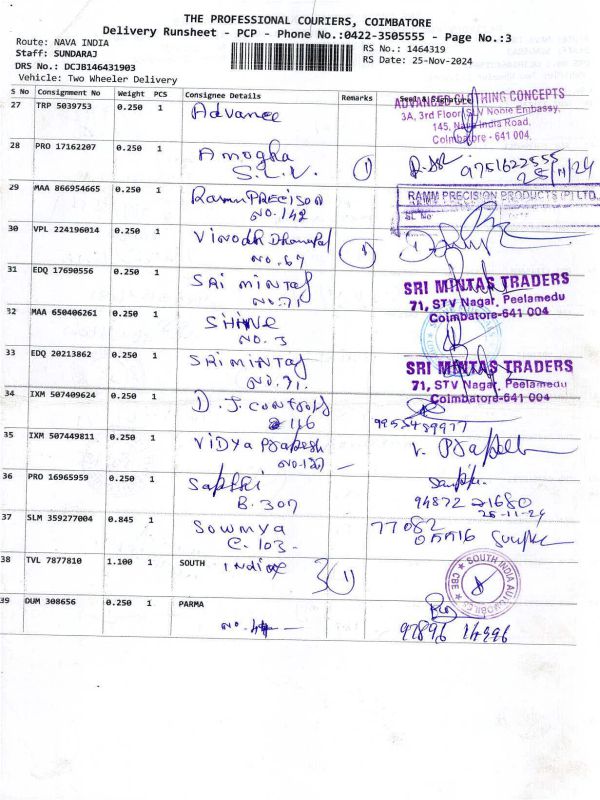 THE PROFESSIONAL COURIERS, COIMBATORE
Delivery Runsheet - PCP - Phone No.:0422-3505555 - Page No.:3
Route: NAVA INDIA
Staff: SUNDARAJ
RS No.: 1464319
DRS No.: DCJB146431903
RS Date: 25-Nov-2024
Vehicle: Two Wheeler Delivery
S No Consignment No Weight PCS Consignee Details Remarks Seal & Signature
27 TRP 5039753 0.250 1 Advance
ADVANCED CLOTHING CONCEPTS
3A, 3rd Floor, SLV Noble Embassy,
145, Nava India Road,
Coimbatore - 641 004.
28 PRO 17162207 0.250 1 Amogha
S.L.V. 1 9751622555
25/11/24
29 MAA 866954665 0.250 1 Ramm PRECISON
NO. 142
RAMM PRECISION PRODUCTS (P) LTD.,
30 VPL 224196014 0.250 1 VINODH Dhanapal
NO. 67 1
31 EDQ 17690556 0.250 1 SRI MINTAS
NO. 71
SRI MINTAS TRADERS
71, STV Nagar, Peelamedu
Coimbatore-641 004
32 MAA 650406261 0.250 1 SHINE
NO. 3
33 EDQ 20213862 0.250 1 SRI MINTAS
NO. 71.
SRI MINTAS TRADERS
71, STV Nagar, Peelamedu
Coimbatore-641 004
34 IXM 507409624 0.250 1 D. J. CONTROLS
116
35 IXM 507449811 0.250 1 VIDYA PRAKESH
NO. 127
V.
36 PRO 16965959 0.250 1 Sapthi
B. 307
94872 21680
25-11-24
37 SLM 359277004 0.845 1 SOWMYA
C. 103.
77082
05516
38 TVL 7877810 1.100 1 SOUTH INDIA 1
SOUTH INDIA AUTOMOBILES
CBE
39 DUM 308656 0.250 1 PARMA
NO.
92896 14996